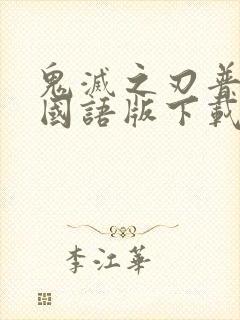 鬼滅之刃普
國語版下載
李江華